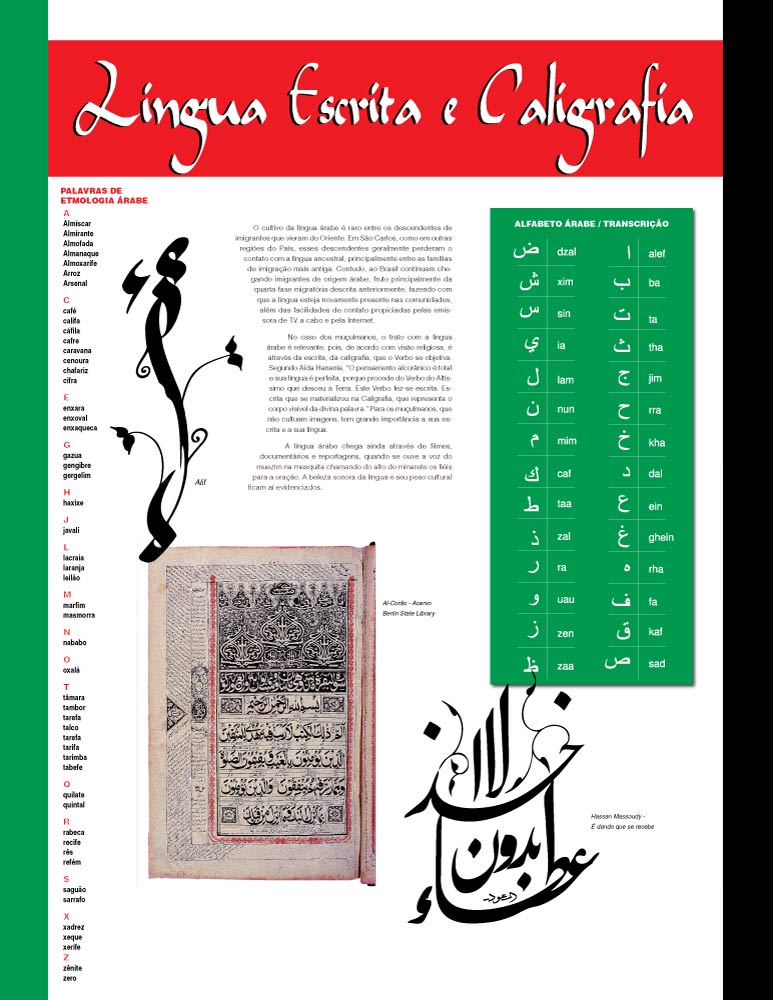 Língua Escrita e Caligrafia
PALAVRAS DE
ETMOLOGIA ÁRABE
A
Almíscar
Almirante
Almofada
Almanaque
Almoxarife
Arroz
Arsenal
C
café
califa
cáfila
cafre
caravana
cenoura
chafariz
cifra
E
enxara
enxoval
enxaqueca
G
gazua
gengibre
gergelim
H
haxixe
J
javali
L
lacraia
laranja
leilão
M
marfim
masmorra
N
nababo
O
oxalá
T
tâmara
tambor
tarefa
talco
tarefa
tarifa
tarimba
tabefe
Q
quilate
quintal
R
rabeca
recife
rês
refém
S
saguão
sarrafo
X
xadrez
xeque
xerife
Z
zênite
zero
Alif
O cultivo da língua árabe é raro entre os descendentes de
imigrantes que vieram do Oriente. Em São Carlos, como em outras
regiões do País, esses descendentes geralmente perderam o
contato com a língua ancestral, principalmente entre as famílias
de imigração mais antiga. Contudo, ao Brasil continuam che-
gando imigrantes de origem árabe, fruto principalmente da
quarta fase migratória descrita anteriormente, fazendo com
que a língua esteja novamente presente nas comunidades,
além das facilidades de contato propiciadas pelas emis-
sora de TV a cabo e pela Internet.
No caso dos muçulmanos, o trato com a língua
árabe é relevante, pois, de acordo com visão religiosa, é
através da escrita, da caligrafia, que o Verbo se objetiva.
Segundo Aida Hanania, "O pensamento alcorânico é total
e sua língua é perfeita, porque procede do Verbo do Altís-
simo que desceu à Terra. Este Verbo fez-se escrita. Es-
crita que se materializou na Caligrafia, que representa o
corpo visível da divina palavra." Para os muçulmanos, que
não cultuam imagens, tem grande importância a sua es-
crita e a sua língua.
A língua árabe chega ainda através de filmes,
documentários e reportagens, quando se ouve a voz do
muezim na mesquita chamando do alto do minarete os fiéis
para a oração. A beleza sonora da língua e seu peso cultural
ficam aí evidenciados.
ALFABETO ÁRABE / TRANSCRIÇÃO
ض dzal ا alef
ش xim ب ba
س sin ت ta
ي ia ث tha
ل lam ج jim
ن nun ح rra
م mim خ kha
ك caf د dal
ط taa ع ein
ذ zal غ ghein
ر ra ه rha
و uau ف fa
ز zen ق kaf
ظ zaa ص sad
Al-Corão - Acervo
Berlin State Library
بسم الله الرحمن الرحيم
الم ذلك الكتب لا ريب فيه هدى للمتقين
الذين يؤمنون بالغيب ويقيمون الصلوة
لا اخذ
بدون
عطاء
Hassan Massoudy -
É dando que se recebe